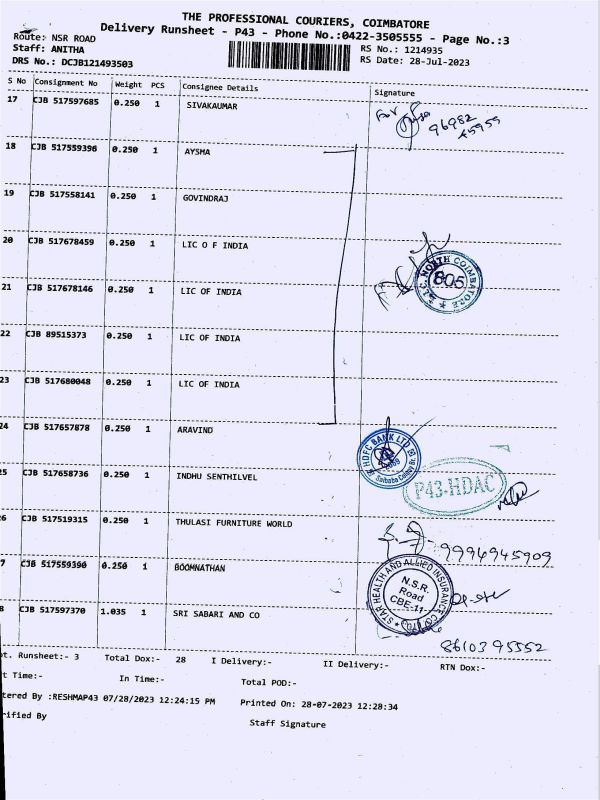 THE PROFESSIONAL COURIERS, COIMBATORE
Delivery Runsheet - P43 - Phone No.:0422-3505555 - Page No.:3
Route: NSR ROAD
Staff: ANITHA
DRS No.: DCJB121493503
RS No.: 1214935
RS Date: 28-Jul-2023
S No Consignment No Weight PCS Consignee Details Signature
17 CJB 517597685 0.250 1 SIVAKAUMAR
96982
45955
18 CJB 517559396 0.250 1 AYSMA
19 CJB 517558141 0.250 1 GOVINDRAJ
20 CJB 517678459 0.250 1 LIC O F INDIA
L.I.C. NORTH COIMBATORE
805
21 CJB 517678146 0.250 1 LIC OF INDIA
22 CJB 89515373 0.250 1 LIC OF INDIA
23 CJB 517680048 0.250 1 LIC OF INDIA
24 CJB 517657878 0.250 1 ARAVIND
HDFC BANK LTD
Saibaba Colony Br.
25 CJB 517658736 0.250 1 INDHU SENTHILVEL
P43-HDAC
6 CJB 517519315 0.250 1 THULASI FURNITURE WORLD
9994945909
7 CJB 517559390 0.250 1 BOOMNATHAN
STAR HEALTH AND ALLIED INSURANCE CO LTD
N.S.R.
Road
CBE-11
8 CJB 517597370 1.035 1 SRI SABARI AND CO
8610395552
t. Runsheet:- 3 Total Dox:- 28 I Delivery:- II Delivery:- RTN Dox:-
t Time:- In Time:- Total POD:-
tered By :RESHMAP43 07/28/2023 12:24:15 PM Printed On: 28-07-2023 12:28:34
rified By Staff Signature